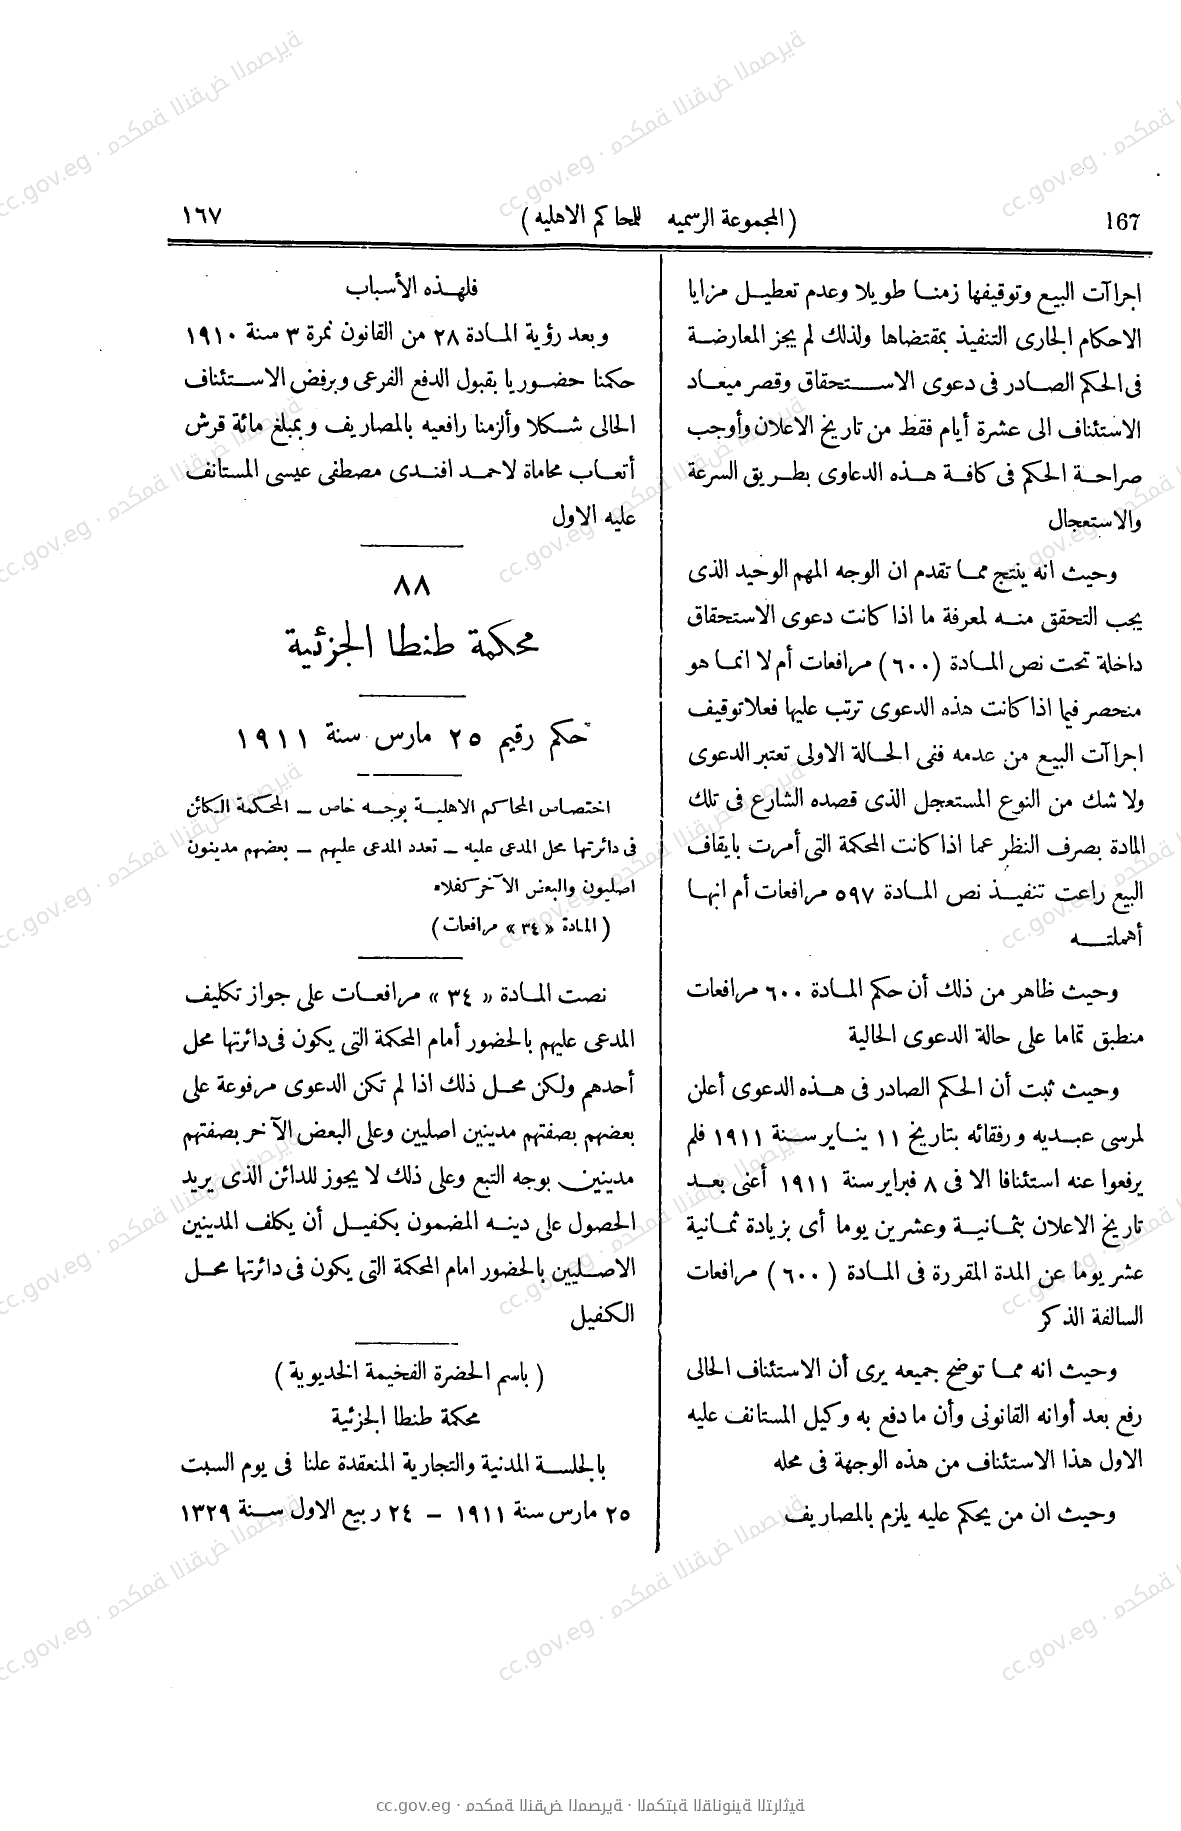 167
(المجموعة الرسميه للمحاكم الاهليه)
١٦٧
اجراآت البيع وتوقيفها زمنا طويلا وعدم تعطيل مزايا
الاحكام الجارى التنفيذ بمقتضاها ولذلك لم يجز المعارضة
فى الحكم الصادر فى دعوى الاستحقاق وقصر ميعاد
الاستئناف الى عشرة أيام فقط من تاريخ الاعلان وأوجب
صراحة الحكم فى كافة هذه الدعاوى بطريق السرعة
والاستعجال
وحيث انه ينتج مما تقدم ان الوجه المهم الوحيد الذى
يجب التحقق منه لمعرفة ما اذا كانت دعوى الاستحقاق
داخلة تحت نص المادة (٦٠٠) مرافعات أم لا انما هو
منحصر فيما اذا كانت هذه الدعوى ترتب عليها فعلا توقيف
اجراآت البيع من عدمه ففى الحالة الاولى تعتبر الدعوى
ولا شك من النوع المستعجل الذى قصده الشارع فى تلك
المادة بصرف النظر عما اذا كانت المحكمة التى أمرت بايقاف
البيع راعت تنفيذ نص المادة ٥٩٧ مرافعات أم انها
أهملته
وحيث ظاهر من ذلك أن حكم المادة ٦٠٠ مرافعات
منطبق تماما على حالة الدعوى الحالية
وحيث ثبت أن الحكم الصادر فى هذه الدعوى أعلن
لمرسى عبديه ورفقائه بتاريخ ١١ يناير سنة ١٩١١ فلم
يرفعوا عنه استئنافا الا فى ٨ فبراير سنة ١٩١١ أعنى بعد
تاريخ الاعلان بثمانية وعشرين يوما أى بزيادة ثمانية
عشر يوما عن المدة المقررة فى المادة (٦٠٠) مرافعات
السالفة الذكر
وحيث انه مما توضح جميعه يرى أن الاستئناف الحالى
رفع بعد أوانه القانونى وأن ما دفع به وكيل المستانف عليه
الاول هذا الاستئناف من هذه الوجهة فى محله
وحيث ان من يحكم عليه يلزم بالمصاريف
فلهذه الأسباب
وبعد رؤية المادة ٢٨ من القانون نمرة ٣ سنة ١٩١٠
حكمنا حضوريا بقبول الدفع الفرعى وبرفض الاستئناف
الحالى شكلا وألزمنا رافعيه بالمصاريف وبمبلغ مائة قرش
أتعاب محاماة لاحمد افندى مصطفى عيسى المستانف
عليه الاول
٨٨
محكمة طنطا الجزئية
حكم رقيم ٢٥ مارس سنة ١٩١١
اختصاص المحاكم الاهلية بوجه خاص – المحكمة الكائن
فى دائرتها محل المدعى عليه – تعدد المدعى عليهم – بعضهم مدينون
اصليون والبعض الآخر كفلاء
(المادة «٣٤» مرافعات)
نصت المادة «٣٤» مرافعات على جواز تكليف
المدعى عليهم بالحضور أمام المحكمة التى يكون فى دائرتها محل
أحدهم ولكن محل ذلك اذا لم تكن الدعوى مرفوعة على
بعضهم بصفتهم مدينين اصليين وعلى البعض الآخر بصفتهم
مدينين بوجه التبع وعلى ذلك لا يجوز للدائن الذى يريد
الحصول على دينه المضمون بكفيل أن يكلف المدينين
الاصليين بالحضور امام المحكمة التى يكون فى دائرتها محل
الكفيل
(باسم الحضرة الفخيمة الخديوية)
محكمة طنطا الجزئية
بالجلسة المدنية والتجارية المنعقدة علنا فى يوم السبت
٢٥ مارس سنة ١٩١١ – ٢٤ ربيع الاول سنة ١٣٢٩
cc.gov.eg · محكمة النقض المصرية · المكتبة القانونية التراثية